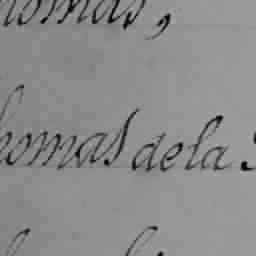 homas,
homas de la